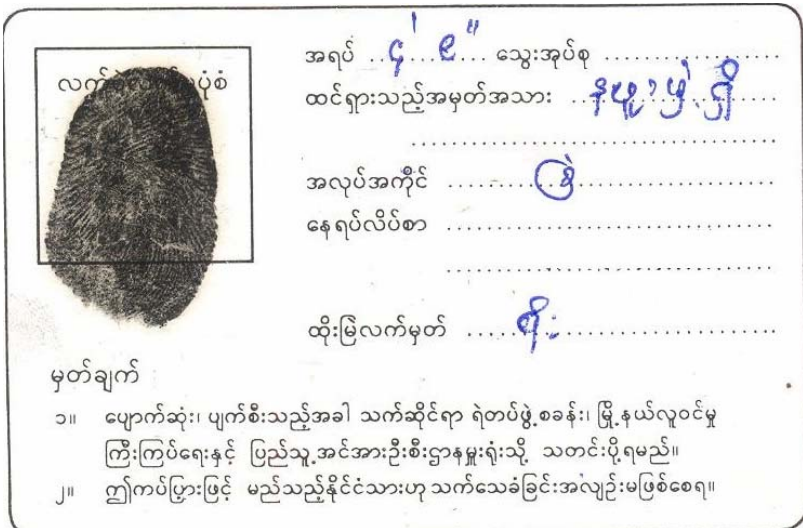 လက်ဝဲလက်မပုံစံ
အရပ် ၄' ၉" သွေးအုပ်စု
ထင်ရှားသည့်အမှတ်အသား နဖူး၁မှဲ့ရှိ
အလုပ်အကိုင်
နေရပ်လိပ်စာ
ထိုးမြဲလက်မှတ်
မှတ်ချက်
၁။ ပျောက်ဆုံး၊ ပျက်စီးသည့်အခါ သက်ဆိုင်ရာ ရဲတပ်ဖွဲ့စခန်း၊ မြို့နယ်လူဝင်မှု
ကြီးကြပ်ရေးနှင့် ပြည်သူ့အင်အားဦးစီးဌာနမှူးရုံးသို့ သတင်းပို့ရမည်။
၂။ ဤကပ်ပြားဖြင့် မည်သည့်နိုင်ငံသားဟု သက်သေခံခြင်းအလျဉ်းမဖြစ်စေရ။